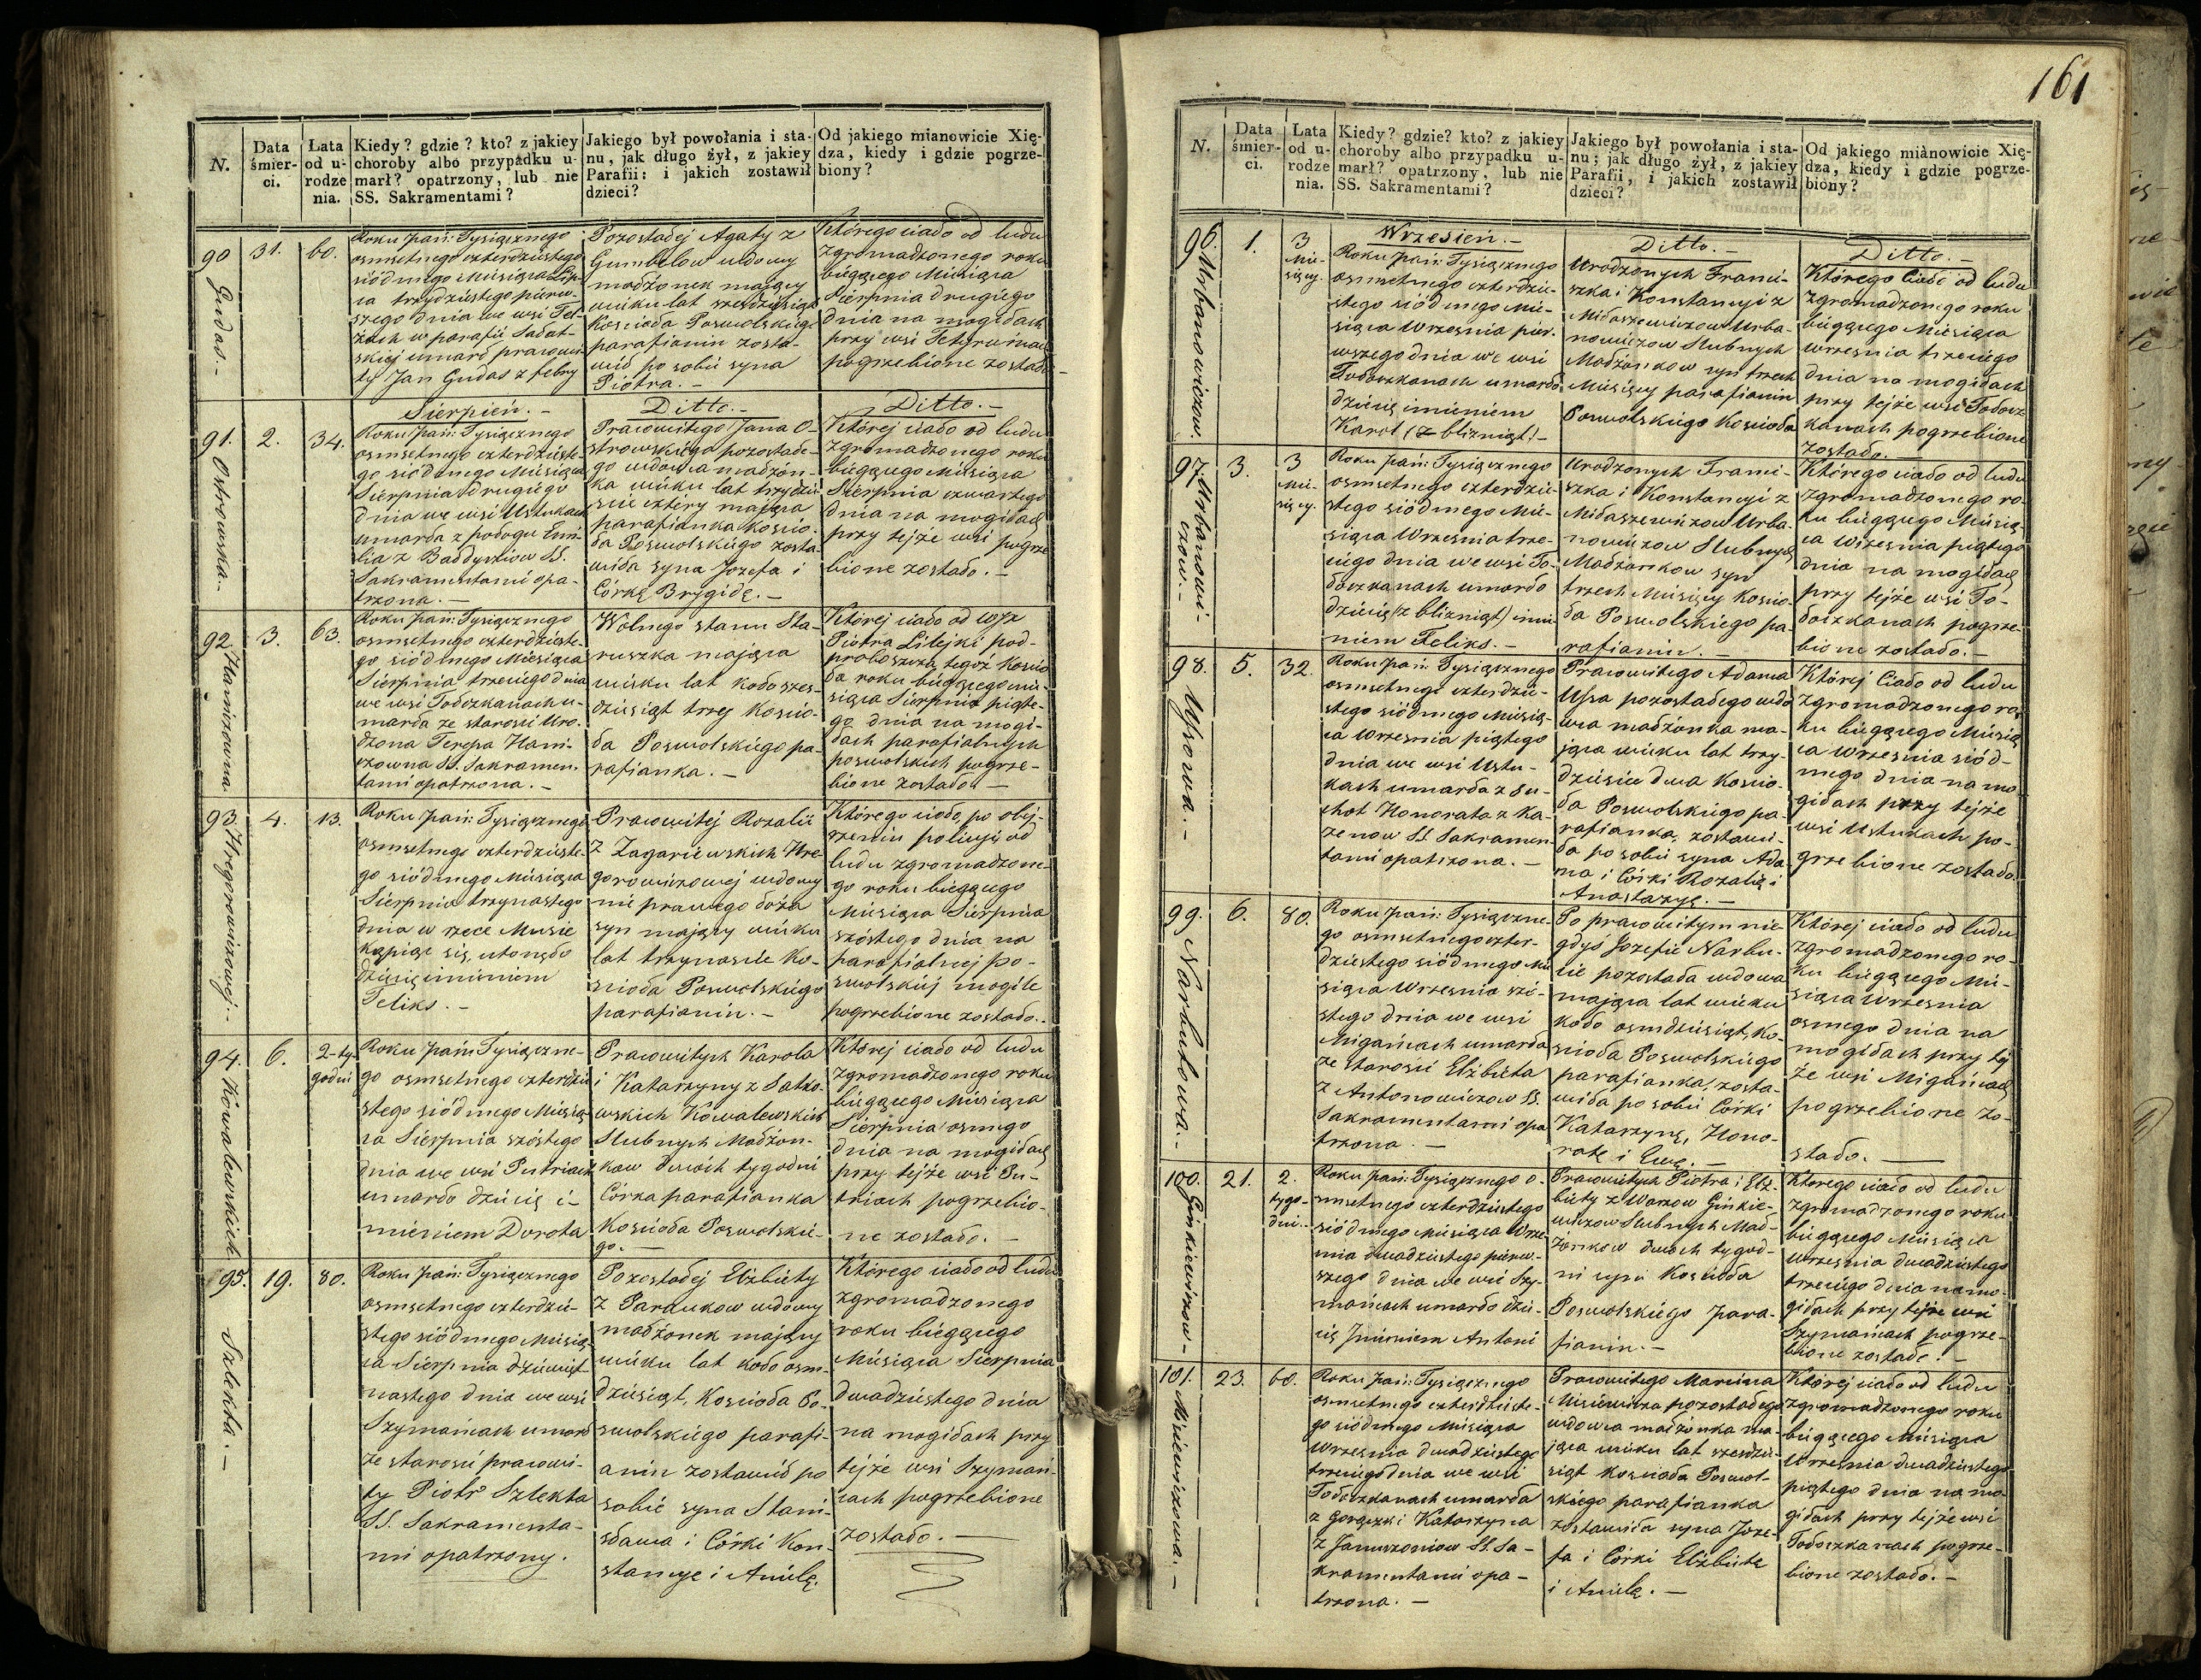 161
N.
Data śmier-ci.
Lata od u-rodze nia.
Kiedy? gdzie? kto? z jakiey
choroby albo przypadku u-
marł? opatrzony, lub nie
SS. Sakramentami?
Jakiego był powołania i sta-
nu, jak długo żył, z jakiey
Parafii: i jakich zostawił
dzieci?
Od jakiego mianowicie Xię-
dza, kiedy i gdzie pogrze-
biony?
90
Gudas.-
31.
60.
Roku Pań: Tysiącznego
osmsetnego czterdziestego
siódmego Miesiąca Lip-
ca trzydziestego pierw-
szego dnia we wsi Tet-
parafii Sałat-
skiej umarł pracowi-
ty Jan Gudas z febry
Pozostałej Agaty z
Gumbelow wdowy
małżonek mający
wieku lat sześdziesiąt
Kościoła Poswolskiego
parafianin zosta-
wił po sobie syna
Piotra.-
Którego ciało od ludu
zgromadzonego roku
biegącego Miesiąca
Sierpnia drugiego
dnia na mogiłach
przy wsi
pogrzebione zostało
Sierpień.-
Ditto.-
Ditto.-
91.
Ostrowska.-
2.
34.
Roku Pań: Tysiącznego
osmsetnego czterdzieste-
go siódmego Miesiąca
Sierpnia drugiego
dnia we wsi Ustukach
umarła z połogu Emi-
lia z SS.
Sakramentami opa-
trzona.-
Pracowitego Jana O-
strowskiego pozostałe-
go wdowca małżon-
ka wieku lat trzydzie-
ście cztéry mająca
parafianka kościo-
ła Poswolskiego zosta-
wiła syna Jozefa i
Córkę Brygidę.-
Której ciało od ludu
zgromadzonego roku
biegącego Miesiąca
Sierpnia czwartego
dnia na mogiłach
przy tejże wsi pogrze
bione zostało.-
92.
3.
63.
Roku Pań: Tysiącznego
osmsetnego czterdzieste-
go siódmego Miesiąca
Sierpnia trzeciego dnia
we wsi Tołoczkaniach u-
marła ze starości Uro-
dzona Teressa Hani-
czowna SS. Sakramen-
tami opatrzona.-
Wolnego stanu Sta-
ruszka mająca
wieku lat koło szes-
dziesiąt trzy Kościo-
ła Poswolskiego pa-
rafianka.-
Której ciało od WJX
Piotra Lilejki pod-
proboszcza tegoż Kościo
ła roku biegącego mie-
siąca Sierpnia piąte-
go dnia na mogi-
łach parafialnych
poswolskich pogrze-
bione zostało.-
93
Hregorowiczowej.-
4.
13.
Roku Pań: Tysiącznego
osmsetnego czterdzieste-
go siódmego Miesiąca
Sierpnia trzynastego
dnia w rzece Musie
kąpiąc się utonęło
dziécię imieniem
Feliks.-
Pracowitej Rozalii
z Zagariewskich Hre-
gorowiczowej wdowy
nie prawego łoża
syn mający wieku
lat trzynaście Ko-
ścioła Poswolskiego
parafianin.-
Którego ciało, po obej-
rzeniu policyi od
ludu zgromadzone-
go roku biegącego
Miesiąca Sierpnia
szóstego dnia na
parafialnej po-
swolskiej mogile
pogrzebione zostało.-
94.
Kowalewskich
6.
2-ty
godni
Roku Pań: Tysiączne-
go osmsetnego czterdzie
stego siódmego Miesią
ca Sierpnia szóstego
dnia we wsi Putriach
umarło dziécię i-
mieniem Dorota
Pracowitych Karola
i Katarzyny z Satko-
wskich Kowalewskich
Slubnych Małżon-
kow dwóch tygodni
Córka parafianka
Kościoła Poswolskie-
go.-
Której ciało od ludu
zgromadzonego roku
biegącego Miesiąca
Sierpnia osmego
dnia na mogiłach
przy tejże wsi Pu-
triach pogrzebio-
ne zostało.-
95.
Szlekta.-
19.
80.
Roku Pań: Tysiącznego
osmsetnego czterdzie-
stego siódmego Miesią-
ca Sierpnia dziewięt-
nastego dnia we wsi
Szymańcach umarł
ze starości pracowi-
ty Piotr Szlekta
SS. Sakramenta-
mi opatrzony.
Pozostałej Elżbiety
z Paraukow wdowy
małżonek mający
wieku lat koło osm-
dziesiąt, Kościoła Po-
swolskiego parafi-
anin zostawił po
sobie syna Stani-
sława i Córki Kon-
stancye i Anielę.
Którego ciało od ludu
zgromadzonego
roku biegącego
Miesiąca Sierpnia
dwadziestego dnia
na mogiłach przy
tejże wsi Szymań-
cach pogrzebione
zostało.-
N.
Data śmier-ci.
Lata od u-rodze nia.
Kiedy? gdzie? kto? z jakiey
choroby albo przypadku u-
marł? opatrzony, lub nie
SS. Sakramentami?
Jakiego był powołania i sta-
nu; jak długo żył, z jakiey
Parafii, i jakich zostawił
dzieci?
Od jakiego miànowicie Xię-
dza, kiedy i gdzie pogrze-
biony?
Wrzesień.-
Ditto.-
Ditto.-
96.
Urbanowiczow.
1.
3
Mie-
sięcy.
Roku Pań: Tysiącznego
osmsetnego czterdzie-
stego siódmego Mie-
siąca Września pier-
wszego dnia we wsi
Tołoczkanach umarło
dziécię imieniem
Karol (z bliźniąt)-
Urodzonych Franci-
szka i Konstancyi z
Miłaszewiczow Urba-
nowiczow Slubnych
Małżonkow syn trzech
Miesięcy parafianin
Poswolskiego Kościoła
Którego Ciało od ludu
zgromadzonego roku
biegącego Miesiąca
września trzeciego
dnia na mogiłach
przy tejże wsi Tołocz
kanach pogrzebione
zostało.-
97.
Urbanowi-
czow.-
3.
3
Mie-
sięcy.
Roku Pań: Tysiącznego
osmsetnego czterdzie-
stego siódmego Mie-
siąca Września trze-
ciego dnia we wsi To-
łoczkanach umarło
dziécię (z bliźniąt) imie
niem Feliks.-
Urodzonych Franci-
szka i Konstancyi z
Miłaszewiczow Urba-
nowiczow Slubnych
Małżonkow syn
trzech Miesięcy Kościo-
ła Poswolskiego pa-
rafianin.-
Którego ciało od ludu
zgromadzonego ro-
ku biegącego Miesią-
ca Września piątego
dnia na mogiłach
przy tejże wsi To-
łoczkanach pogrze-
bione zostało.-
98.
Ussowa.-
5.
32.
Roku Pań: Tysiącznego
osmsetnego czterdzie-
stego siódmego Miesią-
ca Września piątego
dnia we wsi Ustu-
kach umarła z su-
chot Honorata z Ka-
zenow SS. Sakramen-
tami opatrzona.-
Pracowitego Adama
Ussa pozostałego wdo
wca małżonka ma-
jąca wieku lat trzy-
dzieście dwa Kościo-
ła Poswolskiego pa-
rafianka, zostawi-
ła po sobie syna Ada-
ma i Córki Rozalię i
Anastazyę.-
Której Ciało od ludu
zgromadzonego ro-
ku biegącego Miesią
ca Września siód-
mego dnia na mo-
giłach przy tejże
wsi Ustukach po-
grzebione zostało.
99.
Narbutowa.-
6.
80.
Roku Pań: Tysiączne-
go osmsetnego czter-
dziestego siódmego Mie
siąca Września szó-
stego dnia we wsi
Migańcach umarła
ze starości Elżbieta
z Antonowiczow SS.
Sakramentami opa
trzona.-
Po pracowitym nie-
gdyś Jozefie Narbu-
cie pozostała wdowa
mająca lat wieku
koło osmdziesiąt, Ko-
ścioła Poswolskiego
parafianka, zosta-
wiła po sobie Córki
Katarzynę, Hono-
ratę i Ewę.-
Której ciało od ludu
zgromadzonego ro-
ku biegącego Mie-
siąca Września
osmego dnia na
mogiłach przy tej
że wsi Migańcach
pogrzebione zo-
stało.-
100.
Ginkiewiczow-
21.
2.
tygo-
dni.
Roku Pań: Tysiącznego o-
smsetnego czterdziestego
siódmego Miesiąca Wrze-
nia dwadziestego pierw-
szego dnia we wsi Szy-
mańcach umarło dzie-
cię Imieniem Antoni
Pracowitych Piotra i Elż-
biety z Warzow Ginkie-
wiczow Slubnych Mał-
żonkow dwoch tygod-
ni syn Kościoła
Poswolskiego para-
fianin.-
Którego ciało od ludu
zgromadzonego roku
biegącego Miesiąca
Września dwadziestego
trzeciego dnia na mo-
giłach przy tejże wsi
Szymańcach pogrze-
bione zostało.-
101.
Misiewiczowa.-
23.
60.
Roku Pań: Tysiącznego
osmsetnego czterdzieste-
go siódmego Miesiąca
Września dwadziestego
trzeciego dnia we wsi
Tołoczkanach umarła
z gorączki Katarzyna
z Januszoniow SS. Sa-
kramentami opa-
trzona.-
Pracowitego Marcina
Misiewicza pozostałego
wdowca małżonka ma-
jąca wieku lat sześdzie-
siąt Kościoła Poswol-
skiego parafianka
zostawiła syna Joze-
fa i Córki Elżbietę
i Anielę.-
Której ciało od ludu
zgromadzonego roku
biegącego Miesiąca
Września dwadziestego
piątego dnia na mo-
giłach przy tejże wsi
Tołoczkanach pogrze-
bione zostało.-